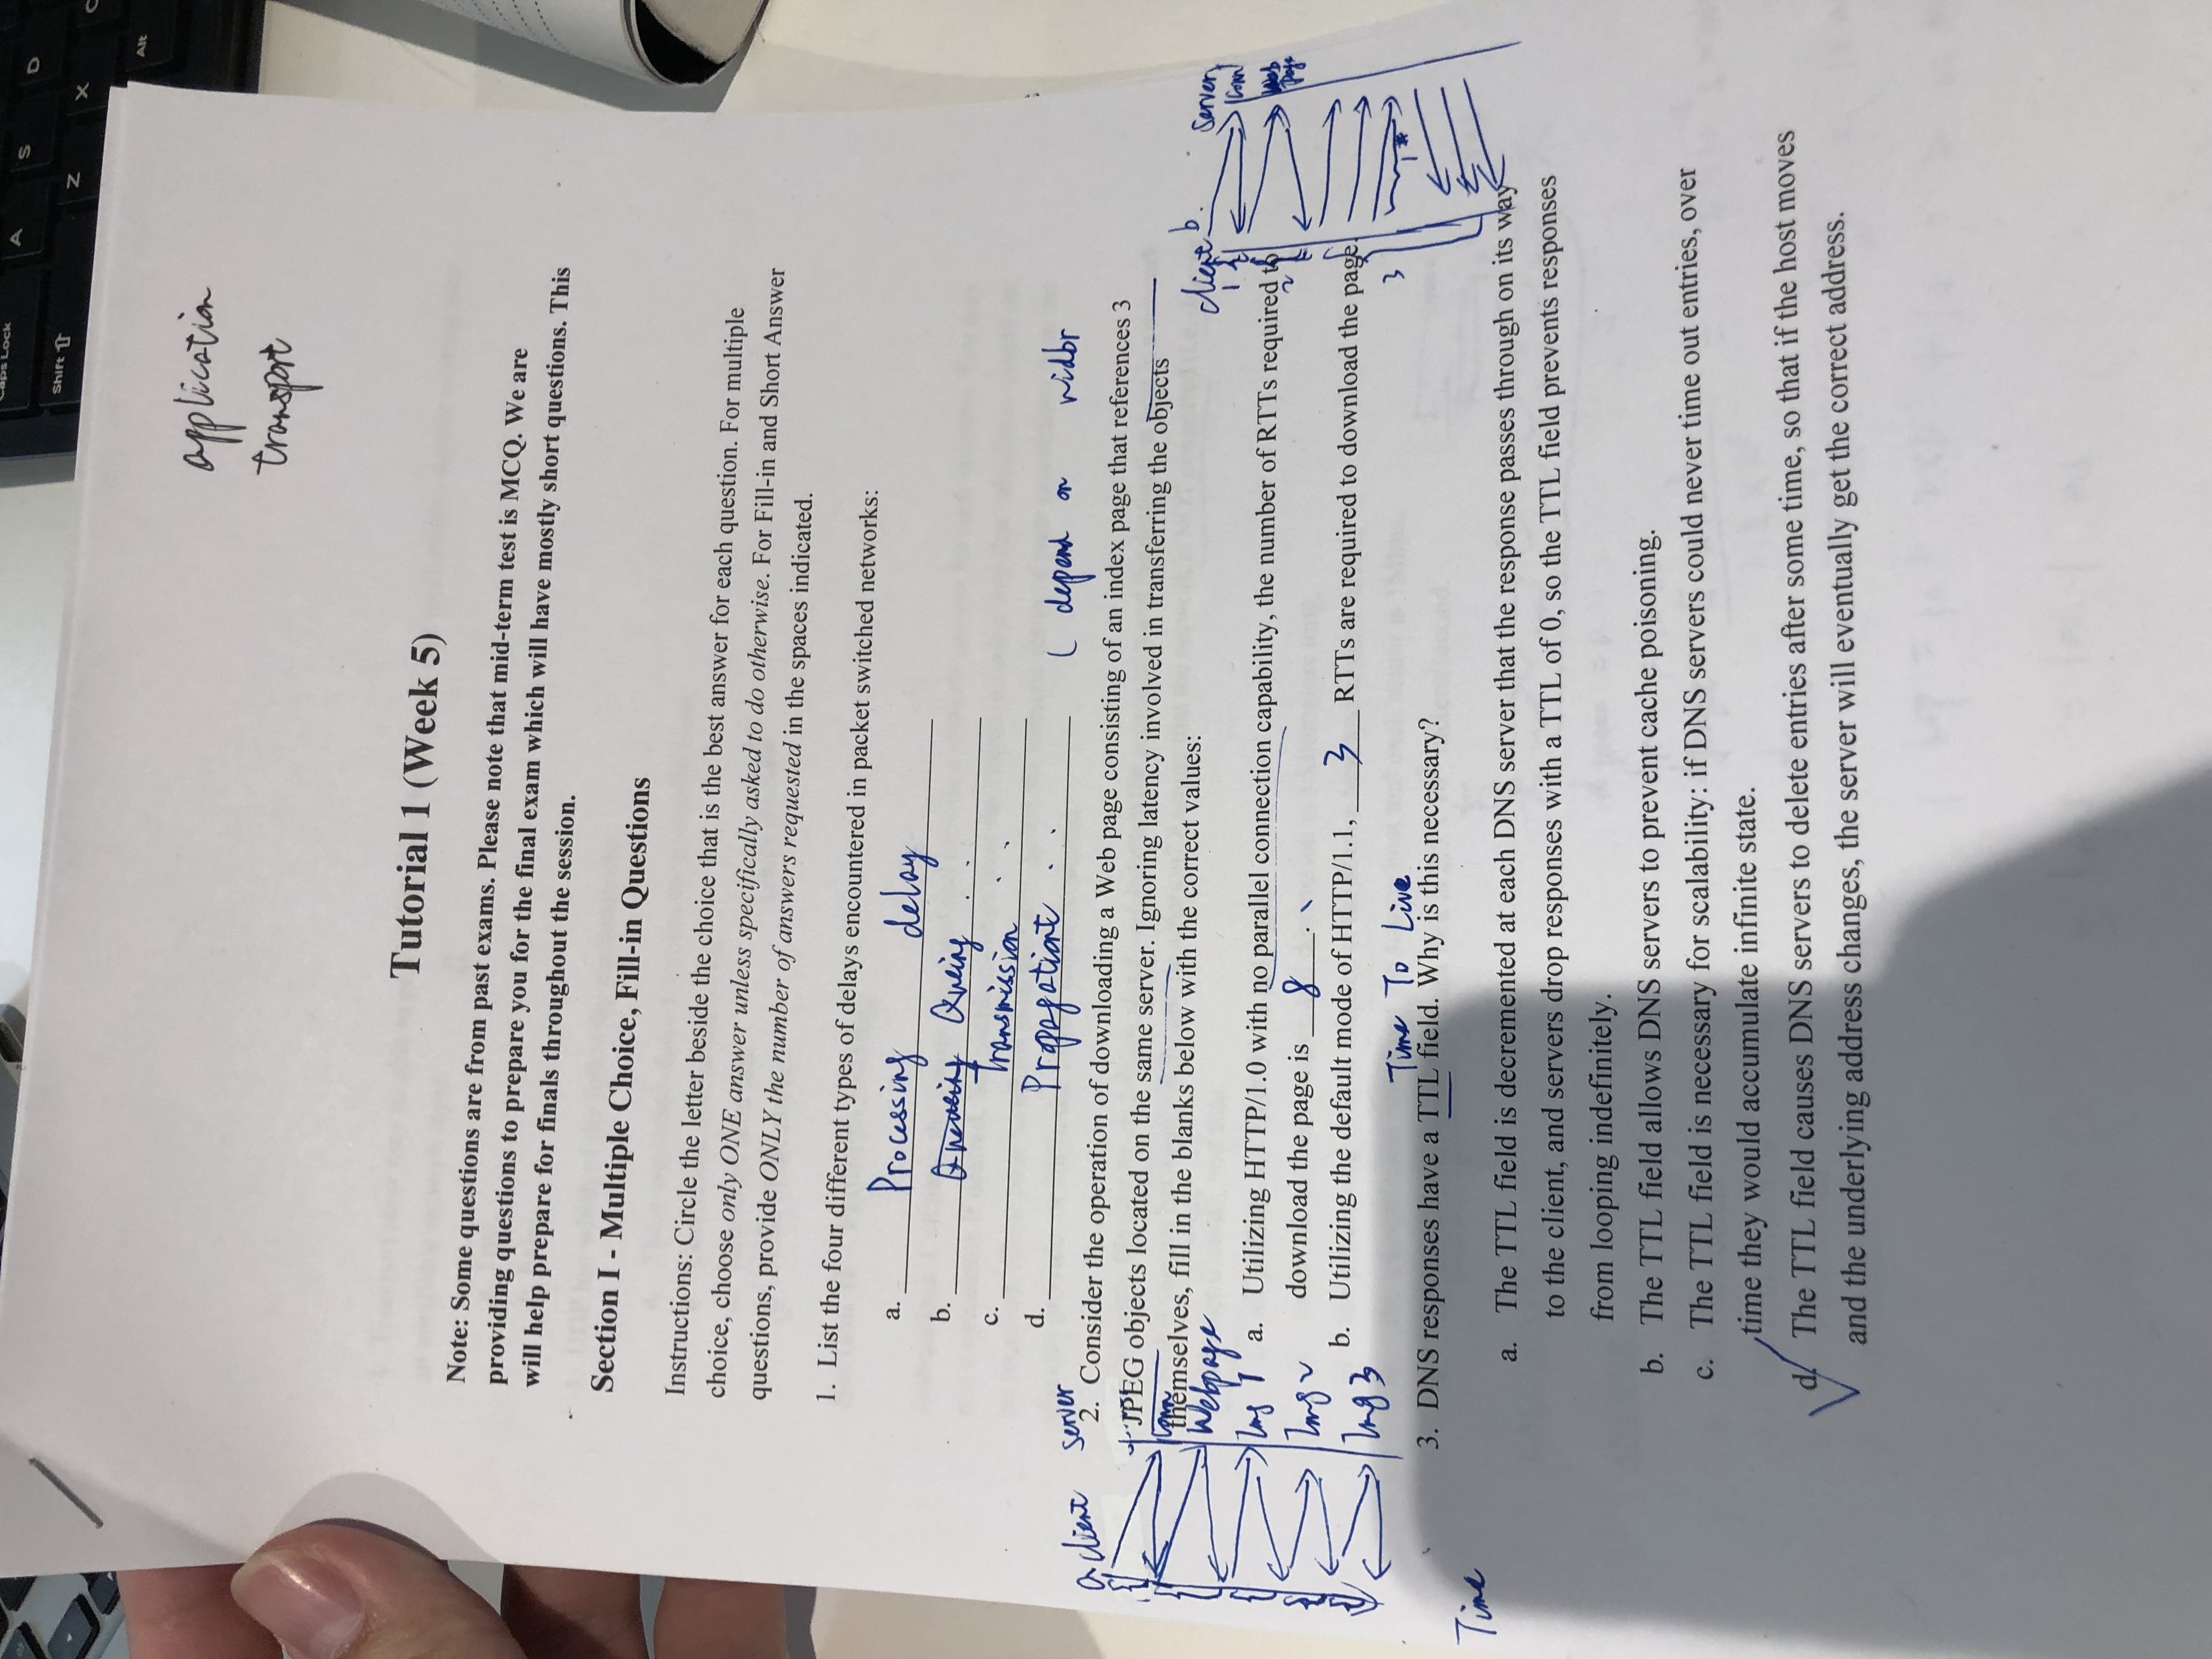 Caps Lock
A
S
D
Shift
Z
X
C
Alt
application
transport
Tutorial 1 (Week 5)
Note: Some questions are from past exams. Please note that mid-term test is MCQ. We are
providing questions to prepare you for the final exam which will have mostly short questions. This
will help prepare for finals throughout the session.
Section I - Multiple Choice, Fill-in Questions
Instructions: Circle the letter beside the choice that is the best answer for each question. For multiple
choice, choose only ONE answer unless specifically asked to do otherwise. For Fill-in and Short Answer
questions, provide ONLY the number of answers requested in the spaces indicated.
1. List the four different types of delays encountered in packet switched networks:
a. Processing delay
b. Queing ..
c. Transmission ..
d. Propagationt .. ( depend on
a client server
2. Consider the operation of downloading a Web page consisting of an index page that references 3
JPEG objects located on the same server. Ignoring latency involved in transferring the objects
Conn
themselves, fill in the blanks below with the correct values:
Webpage
client b. Server
1 Conn
Img 1
a. Utilizing HTTP/1.0 with no parallel connection capability, the number of RTTs required to
2 Web Page
Img 2
download the page is 8.
b. Utilizing the default mode of HTTP/1.1, 3 RTTs are required to download the page.
Img 3
3
Time To Live
3. DNS responses have a TTL field. Why is this necessary?
Time
a. The TTL field is decremented at each DNS server that the response passes through on its way
to the client, and servers drop responses with a TTL of 0, so the TTL field prevents responses
from looping indefinitely.
b. The TTL field allows DNS servers to prevent cache poisoning.
c. The TTL field is necessary for scalability: if DNS servers could never time out entries, over
time they would accumulate infinite state.
d. The TTL field causes DNS servers to delete entries after some time, so that if the host moves
and the underlying address changes, the server will eventually get the correct address.